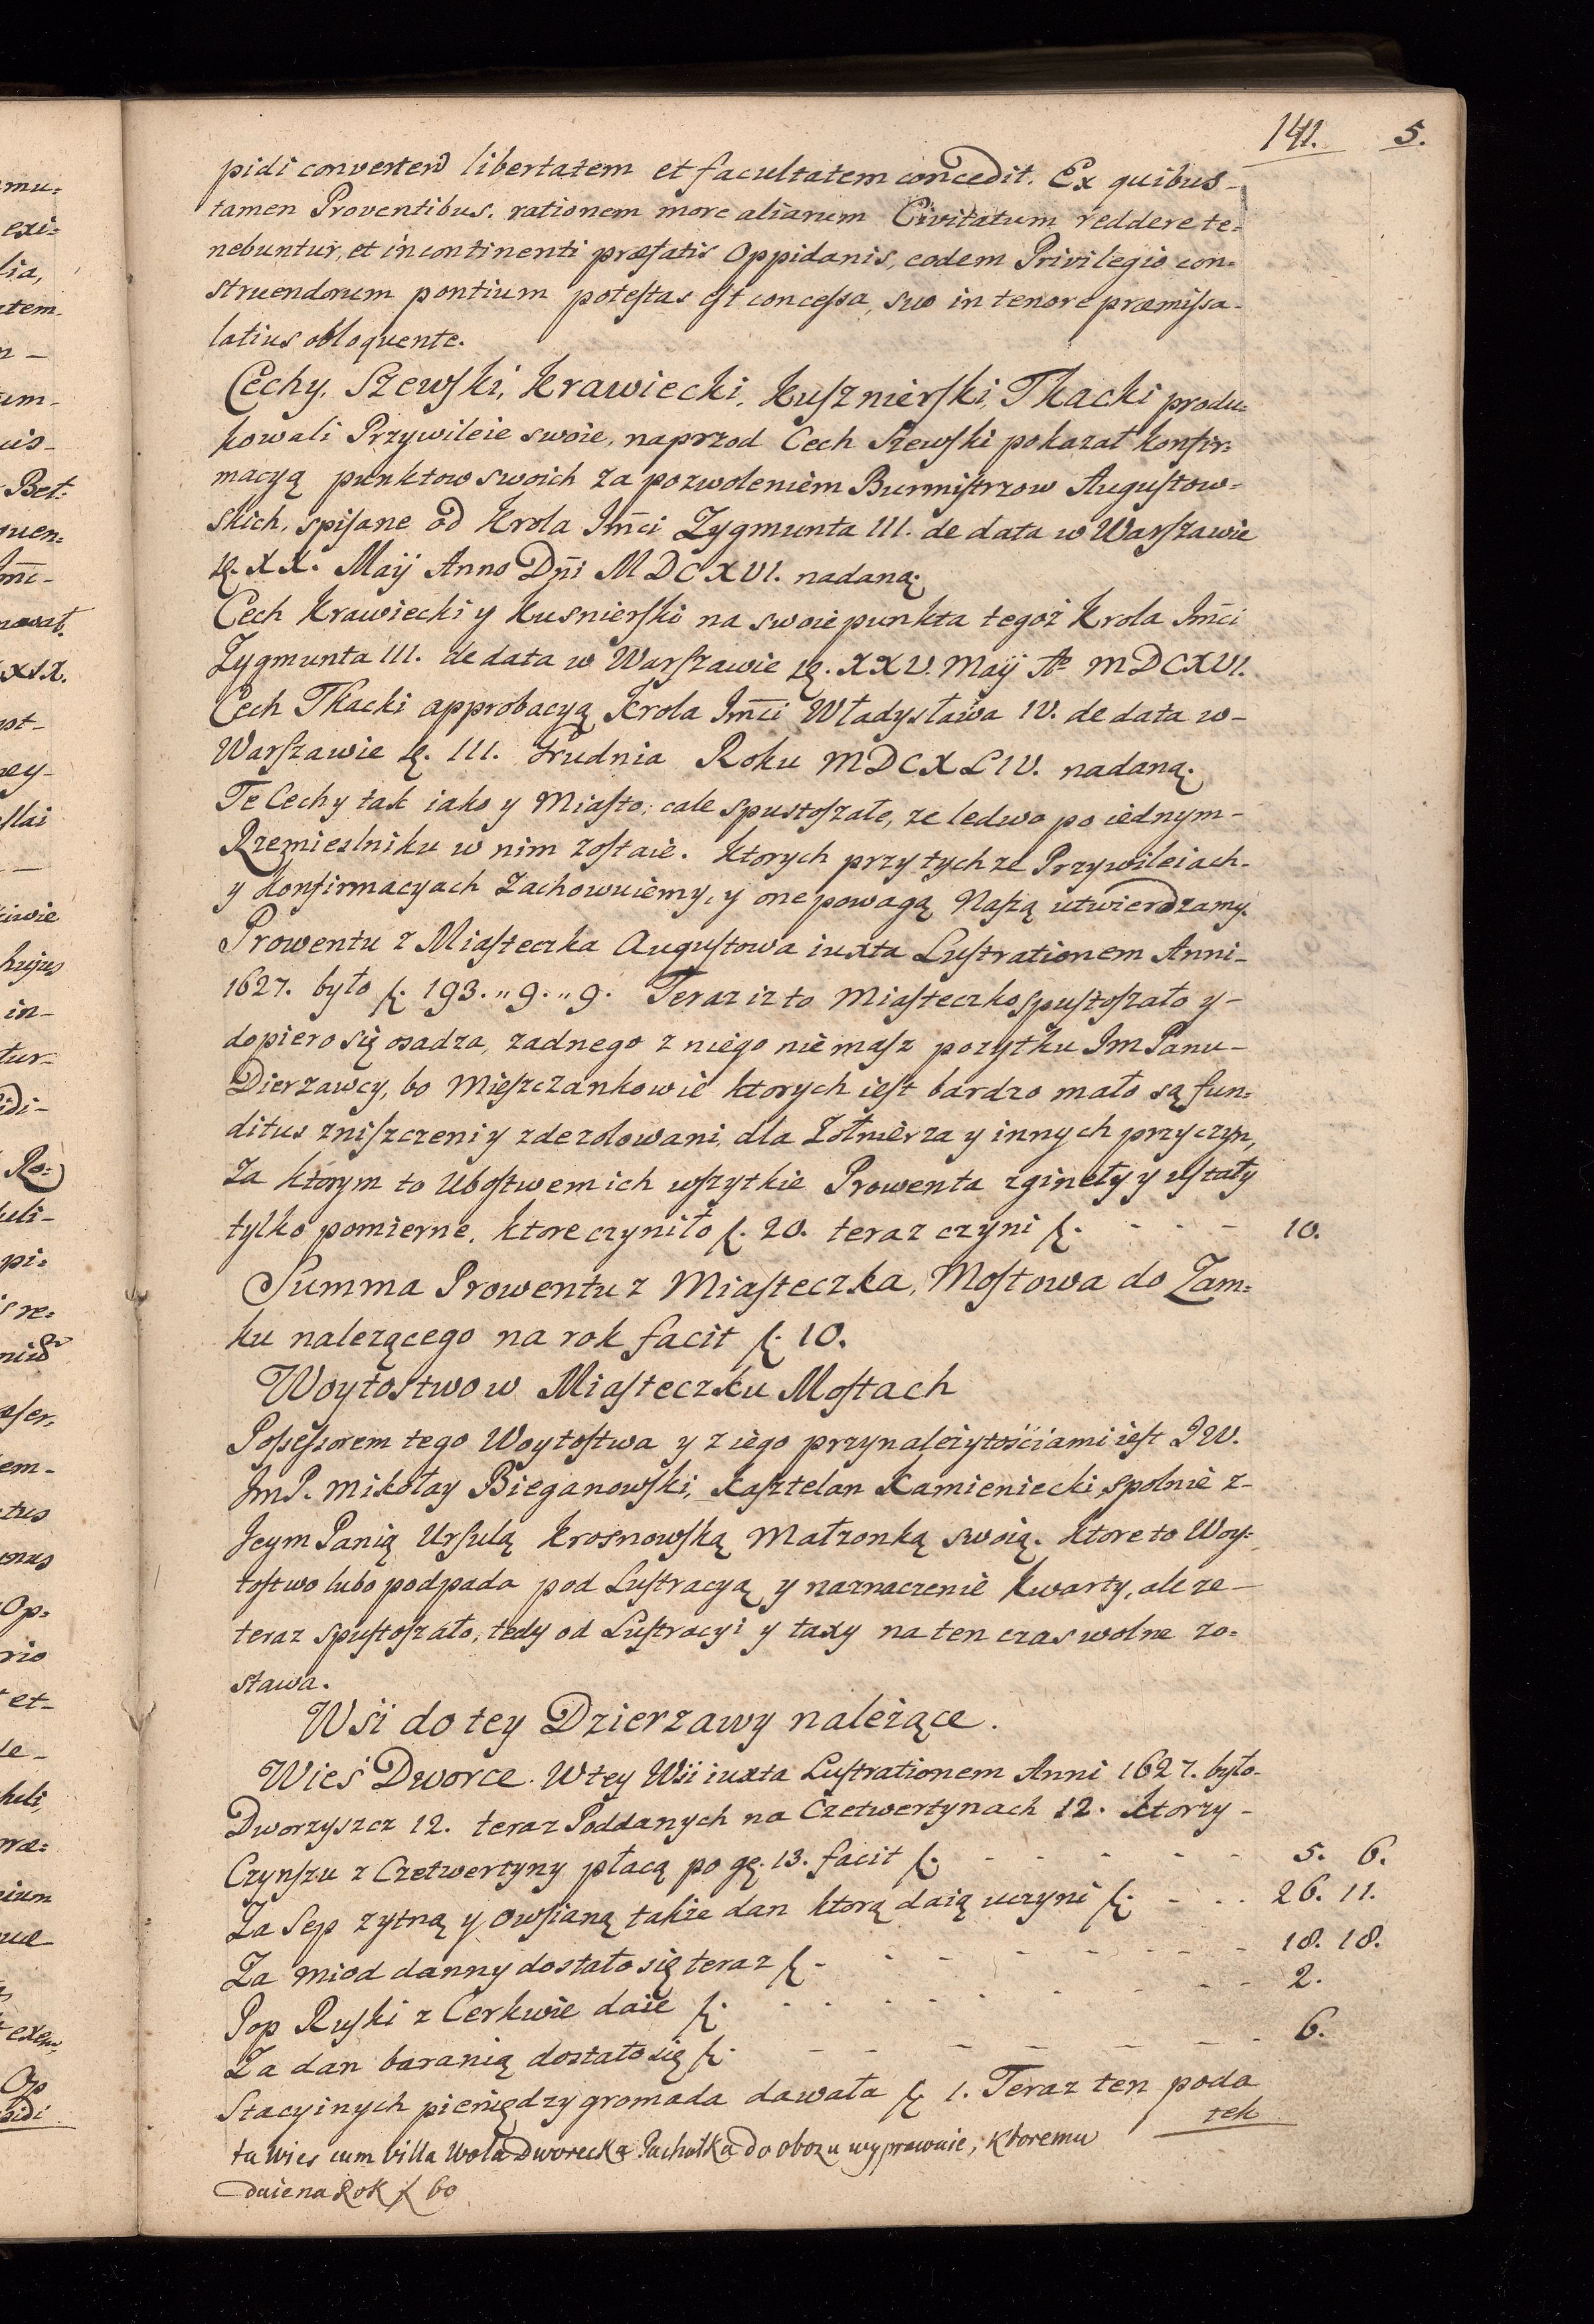 141. 5.
pidi convertend libertatem et facultatem concedit. Ex quibus-
tamen Proventibus, rationem more aliarum Civitatum reddere te=
nebuntur, et incontinenti præfatis Oppidanis, eodem Privilegio con=
struendorum pontium potestas est concessa, suo in tenore præmissa-
latius obloquente.
Cechy, Szewski, Krawiecki, Kusznierski, Tkacki produ=
kowali Przywileie swoie, naprzod Cech Szewski pokazał konfir=
macyą punktow swoich za pozwoleniem Burmistrzow Augustow=
skich, spisane od Krola Jm̄ci Zygmunta III. de data w Warszawie
XX. Maÿ Anno Dn̄i MDCXVI. nadaną.
Cech Krawiecki y Kusnierski na swoie punkta tegoż Krola Jm̄ci
Zygmunta III. de data w Warszawie XXV. Maÿ Ao MDCXVI.
Cech Tkacki approbacyą Krola Jm̄ci Władysława IV. de data w-
Warszawie III. Grudnia Roku MDCXLIV. nadaną.
Te Cechy tak iako y Miasto, cale spustoszałe, ze ledwo po iednym-
Rzemieslniku w nim zostaie. Ktorych przy tych ze Przywileiach-
y Konfirmacyach zachowuiemy, y one powagą Naszą utwierdzamy.
Prowentu z Miasteczka Augustowa iuxta Lustrationem Anni-
1627. było f. 193. „ 9. „ 9. Teraz iz to Miasteczko spustoszało y-
dopiero się osadza, zadnego z niego nie masz pozytku Jm Panu-
Dierzawcy, bo Mieszczankowie ktorych iest bardzo mało są fun=
ditus zniszczeni y zdezolowani, dla Zołnierza y innych przyczyn,
Za ktorym to Ubostwem ich wszytkie Prowenta zgineły y ustały
tylko pomierne, ktore czyniło f. 20. teraz czyni f. - - - - 10.
Summa Prowentu z Miasteczka, Mostowa do Zam=
ku nalezącego na rok facit f. 10.
Woytostwo w Miasteczku Mostach
Possessorem tego Woytostwa y z iego przynależytościami iest JW.
JmP. Mikołay Bieganowski, Kasztelan Kamieniecki, spolnie z-
Jeym Panią Ursulą Krosnowską Małzonką swoią. Ktore to Woy=
tostwo lubo podpada pod Lustracyą y naznaczenie Kwarty, ale ze-
teraz spustoszało, tedy od Lustracyi y taxy na ten czas wolne zo=
stawa.
Wsi do tey Dzierzawy należące.
Wieś Dworce. W tey Wsi iuxta Lustrationem Anni 1627. było-
Dworzyszcz 12. teraz Poddanych na Czetwertynach 12. ktorzy-
Czynszu z Czetwertyny płacą po gę. 13. facit f. - - - - - 5. 6.
Za Sep zytną y Owsianą także dan ktorą daią uczyni f. - - - 26. 11.
Za Miod danny dostało się teraz f. - - - - - - 18. 18.
Pop Ruski z Cerkwie daie f. - - - - - - 2.
Za dan baranią dostało się f. - - - - - - 6.
Stacyinych pieniędzy gromada dawała f. 1. Teraz ten poda
tek
ta wies cum villa Wola Dworecka Pachołka do obozu wyprawuie, ktoremu
daie na Rok f 60